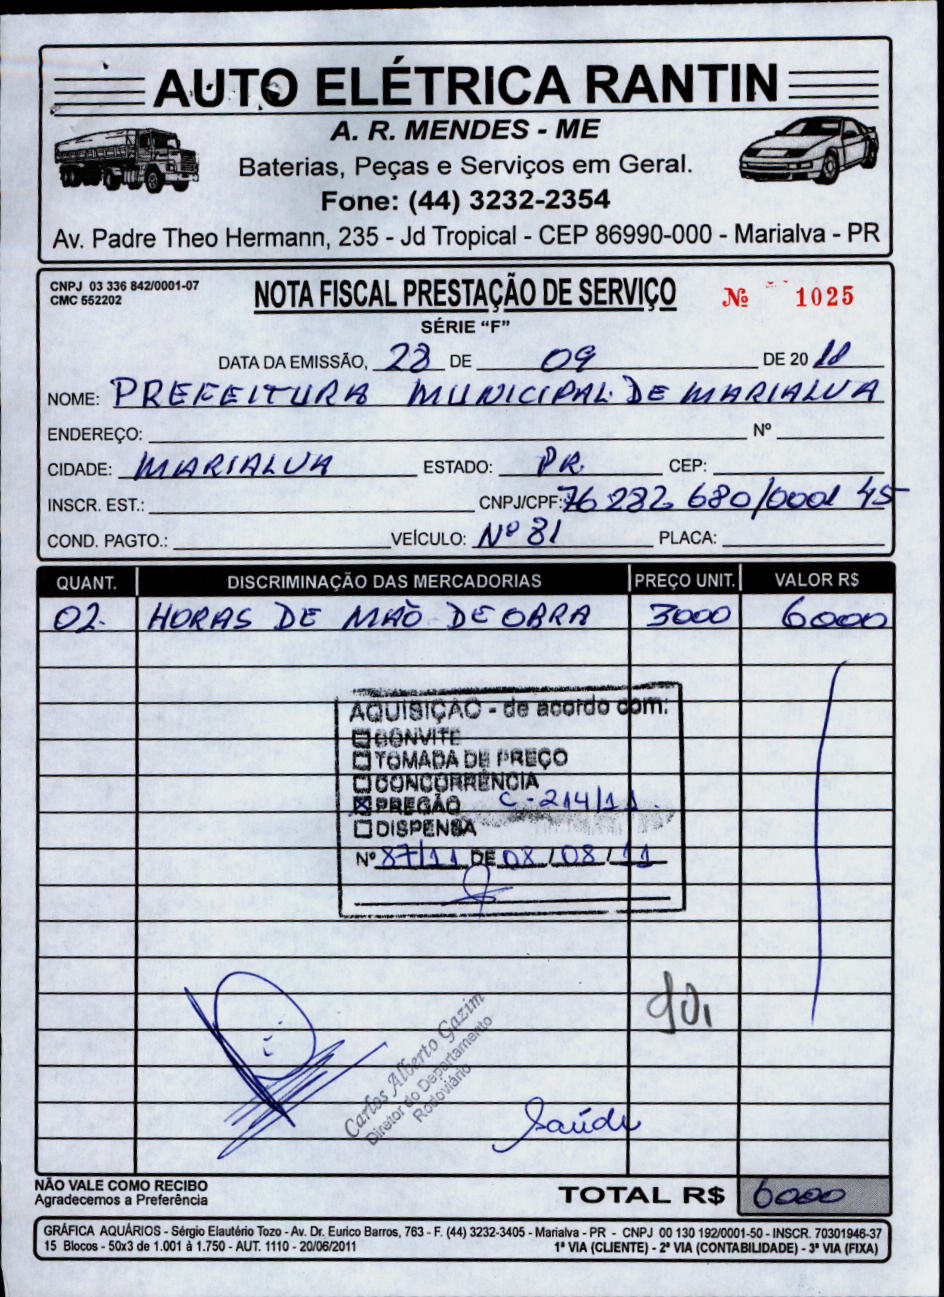 AUTO ELÉTRICA RANTIN
A. R. MENDES - ME
Baterias, Peças e Serviços em Geral.
Fone: (44) 3232-2354
Av. Padre Theo Hermann, 235 - Jd Tropical - CEP 86990-000 - Marialva - PR
CNPJ 03 336 842/0001-07
CMC 552202
NOTA FISCAL PRESTAÇÃO DE SERVIÇO Nº 1025
SÉRIE “F”
DATA DA EMISSÃO, 28 DE 09 DE 20 11
NOME: PREFEITURA MUNICIPAL DE MARIALVA
ENDEREÇO: Nº
CIDADE: MARIALVA ESTADO: PR. CEP:
INSCR. EST.: CNPJ/CPF: 76 282 680/0001 45
COND. PAGTO.: VEÍCULO: Nº 81 PLACA:
QUANT. DISCRIMINAÇÃO DAS MERCADORIAS PREÇO UNIT. VALOR R$
02. HORAS DE MÃO DE OBRA 3000 6000
AQUISIÇÃO - de acordo com:
CONVITE
TOMADA DE PREÇO
CONCORRÊNCIA
PREGÃO C-214/11
DISPENSA
Nº 87/11 DE 08/08/11
Carlos Alberto Gazim
Diretor do Departamento
Rodoviário
Saúde
NÃO VALE COMO RECIBO
Agradecemos a Preferência
TOTAL R$ 6000
GRÁFICA AQUÁRIOS - Sérgio Elautério Tozo - Av. Dr. Eurico Barros, 763 - F. (44) 3232-3405 - Marialva - PR - CNPJ 00 130 192/0001-50 - INSCR. 70301946-37
15 Blocos - 50x3 de 1.001 à 1.750 - AUT. 1110 - 20/06/2011 1ª VIA (CLIENTE) - 2ª VIA (CONTABILIDADE) - 3ª VIA (FIXA)